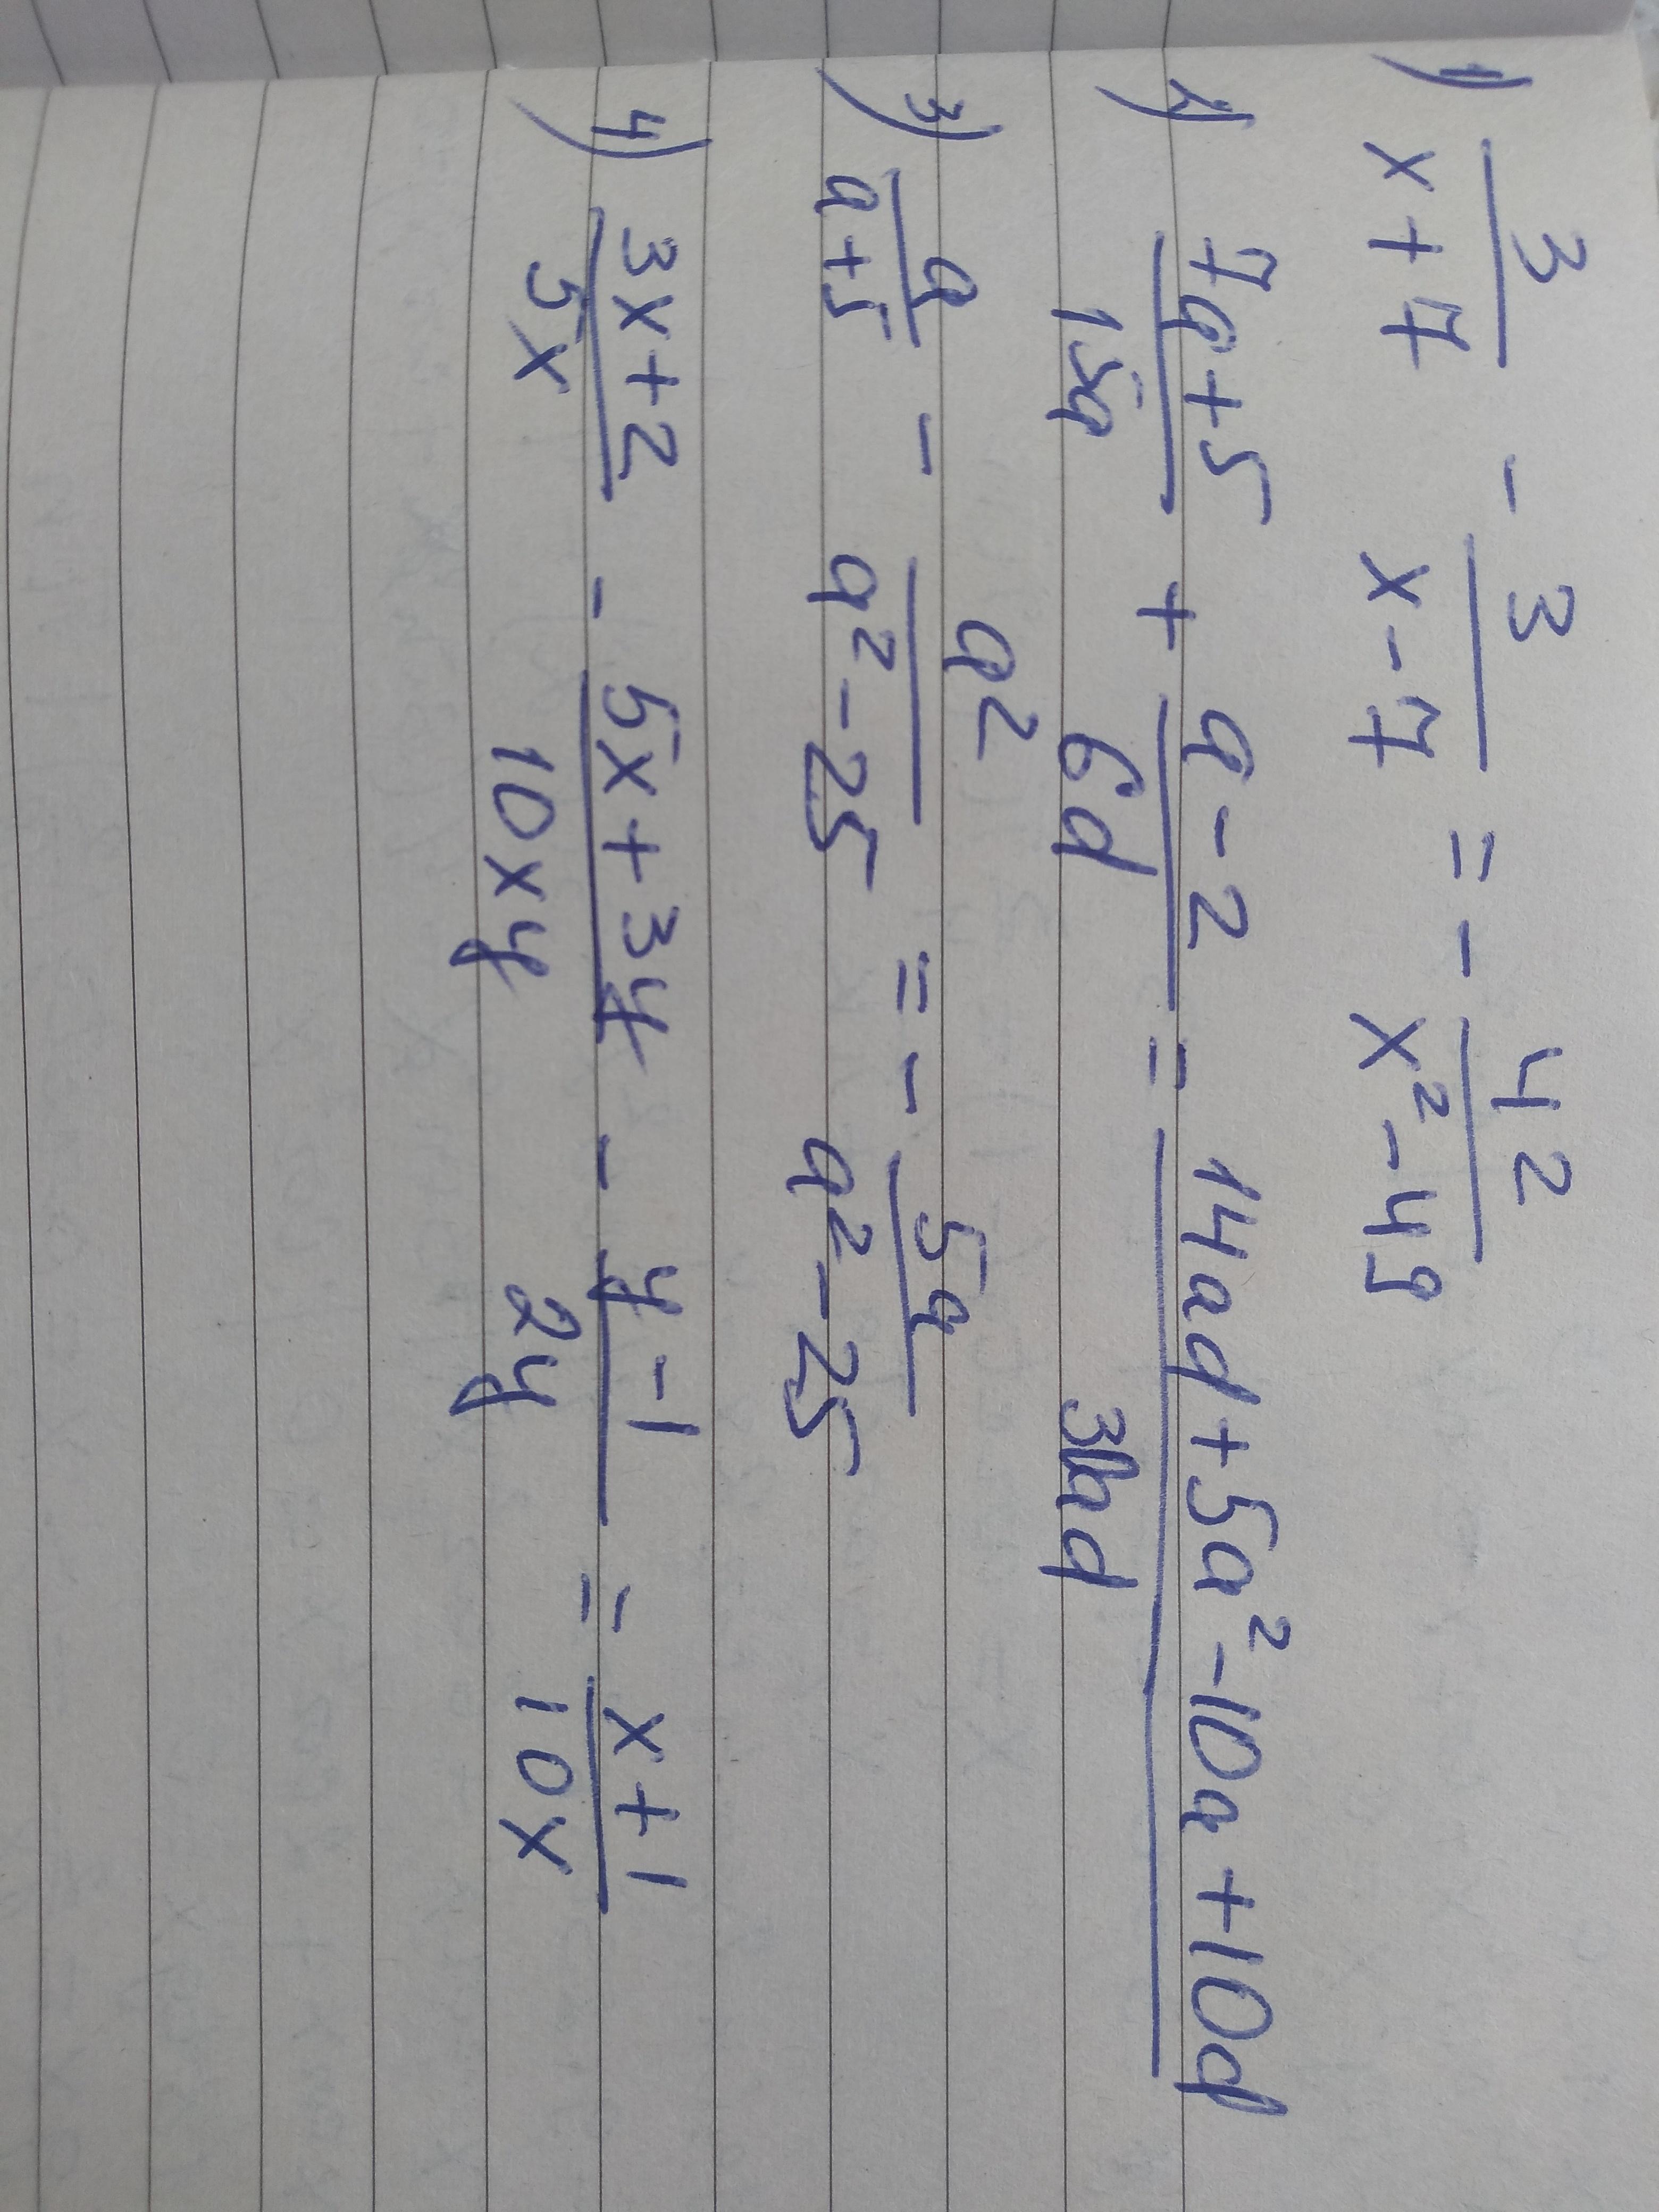 1) 3/(x+7) - 3/(x-7) = - 42/(x²-49)
2) (7a+5)/(15a) + (a-2)/(6d) = (14ad+5a²-10a+10d)/(30ad)
3) a/(a+5) - a²/(a²-25) = - 5a/(a²-25)
4) (3x+2)/(5x) - (5x+3y)/(10xy) - (y-1)/(2y) = (x+1)/(10x)